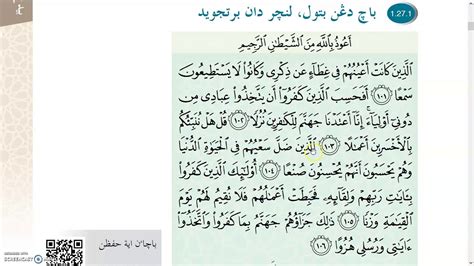 1.27.1
باچ دڠن بتول، لنچر دان برتجويد
أَعُوذُ بِاللَّهِ مِنَ الشَّيْطَانِ الرَّجِيمِ
الَّذِينَ كَانَتْ أَعْيُنُهُمْ فِي غِطَاءٍ عَن ذِكْرِي وَكَانُوا لَا يَسْتَطِيعُونَ
سَمْعًا ١٠١ أَفَحَسِبَ الَّذِينَ كَفَرُوا أَن يَتَّخِذُوا عِبَادِي مِن
دُونِي أَوْلِيَاءَ ۚ إِنَّا أَعْتَدْنَا جَهَنَّمَ لِلْكَافِرِينَ نُزُلًا ١٠٢ قُلْ هَلْ نُنَبِّئُكُم
بِالْأَخْسَرِينَ أَعْمَالًا ١٠٣ الَّذِينَ ضَلَّ سَعْيُهُمْ فِي الْحَيَوٰةِ الدُّنْيَا
وَهُمْ يَحْسَبُونَ أَنَّهُمْ يُحْسِنُونَ صُنْعًا ١٠٤ أُولَٰئِكَ الَّذِينَ كَفَرُوا
بِآيَاتِ رَبِّهِمْ وَلِقَائِهِ فَحَبِطَتْ أَعْمَالُهُمْ فَلَا نُقِيمُ لَهُمْ يَوْمَ
الْقِيَامَةِ وَزْنًا ١٠٥ ذَٰلِكَ جَزَاؤُهُمْ جَهَنَّمُ بِمَا كَفَرُوا وَاتَّخَذُوا
آيَاتِي وَرُسُلِي هُزُوًا ١٠٦
باچاٴن اية حفظن
SCREENCAST